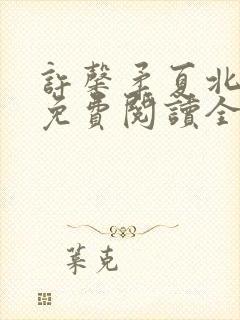 許馨矛夏北
免費閱讀全
葉克